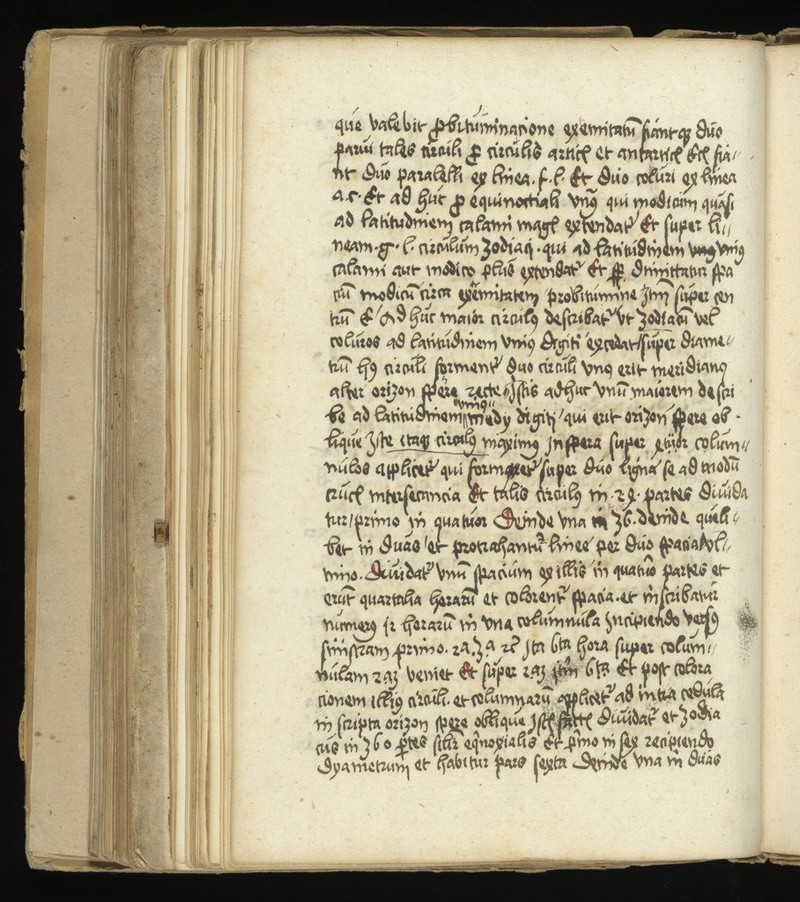 que valebit ꝓbituminacione exemitatū fiant qȝ duo
parui tales circuli ꝓ circulis artici et antartici Et fia-
nt duo paralelli ex linea .f.l. Et duo coluri ex linea
a.c. Et ad huc ꝓ equinoctiali vnꝰ qui modicum quasi
ad latitudinem calami magl extendat Et super li-
neam .g.l. circulum zodiaci . qui ad latitudinem vniꝰ
calami aut modico plus extendat Et dimittatur spa
ciū modicū circa exemitatem probitumine Itm super cen
trū Et Ad huc maior circulꝰ describat vt zodiacū vel
coluros ad latitudinem vniꝰ digiti excedat super diame-
trū hꝰ circuli forment duo circuli vnꝰ erit meridianꝰ
alter orizon spere recte Istis adhuc vnū maiorem descri
be ad latitudinem vniꝰ medij digiti qui erit orizon spere ob-
lique Iste itaqȝ circulꝰ maximꝰ in spera super qtuor colum-
nulos applicet qui formet super duo ligna se ad modū
crucis intersecancia Et talis circulus in .24. partes diuida
tur primo in quatuor Deinde vna in 36. deinde queli-
bet in duas et protrahantur linee per duo spacia vl-
timo. Diuidat vnū spacium ex illis in quatuor partes et
erūt quartalia horarū et colorent spacia . et inscribatur
numerus horarū in vna columnula incipiendo versus
sinistram primo. 2a. 3a 2c Ita 6ta hora super colum-
nulam 2az veniet Et super 2az itm 6ta Et post colora
cionem illius circuli . et columnarū applicet ad intra cedula
in scripta orizon spere oblique diuidat et zodia
cus in 360 ptes silr eqnoxialis Et pimo in sex recipiendo
dyametrum et habitur pars sexta Deinde vna in duas